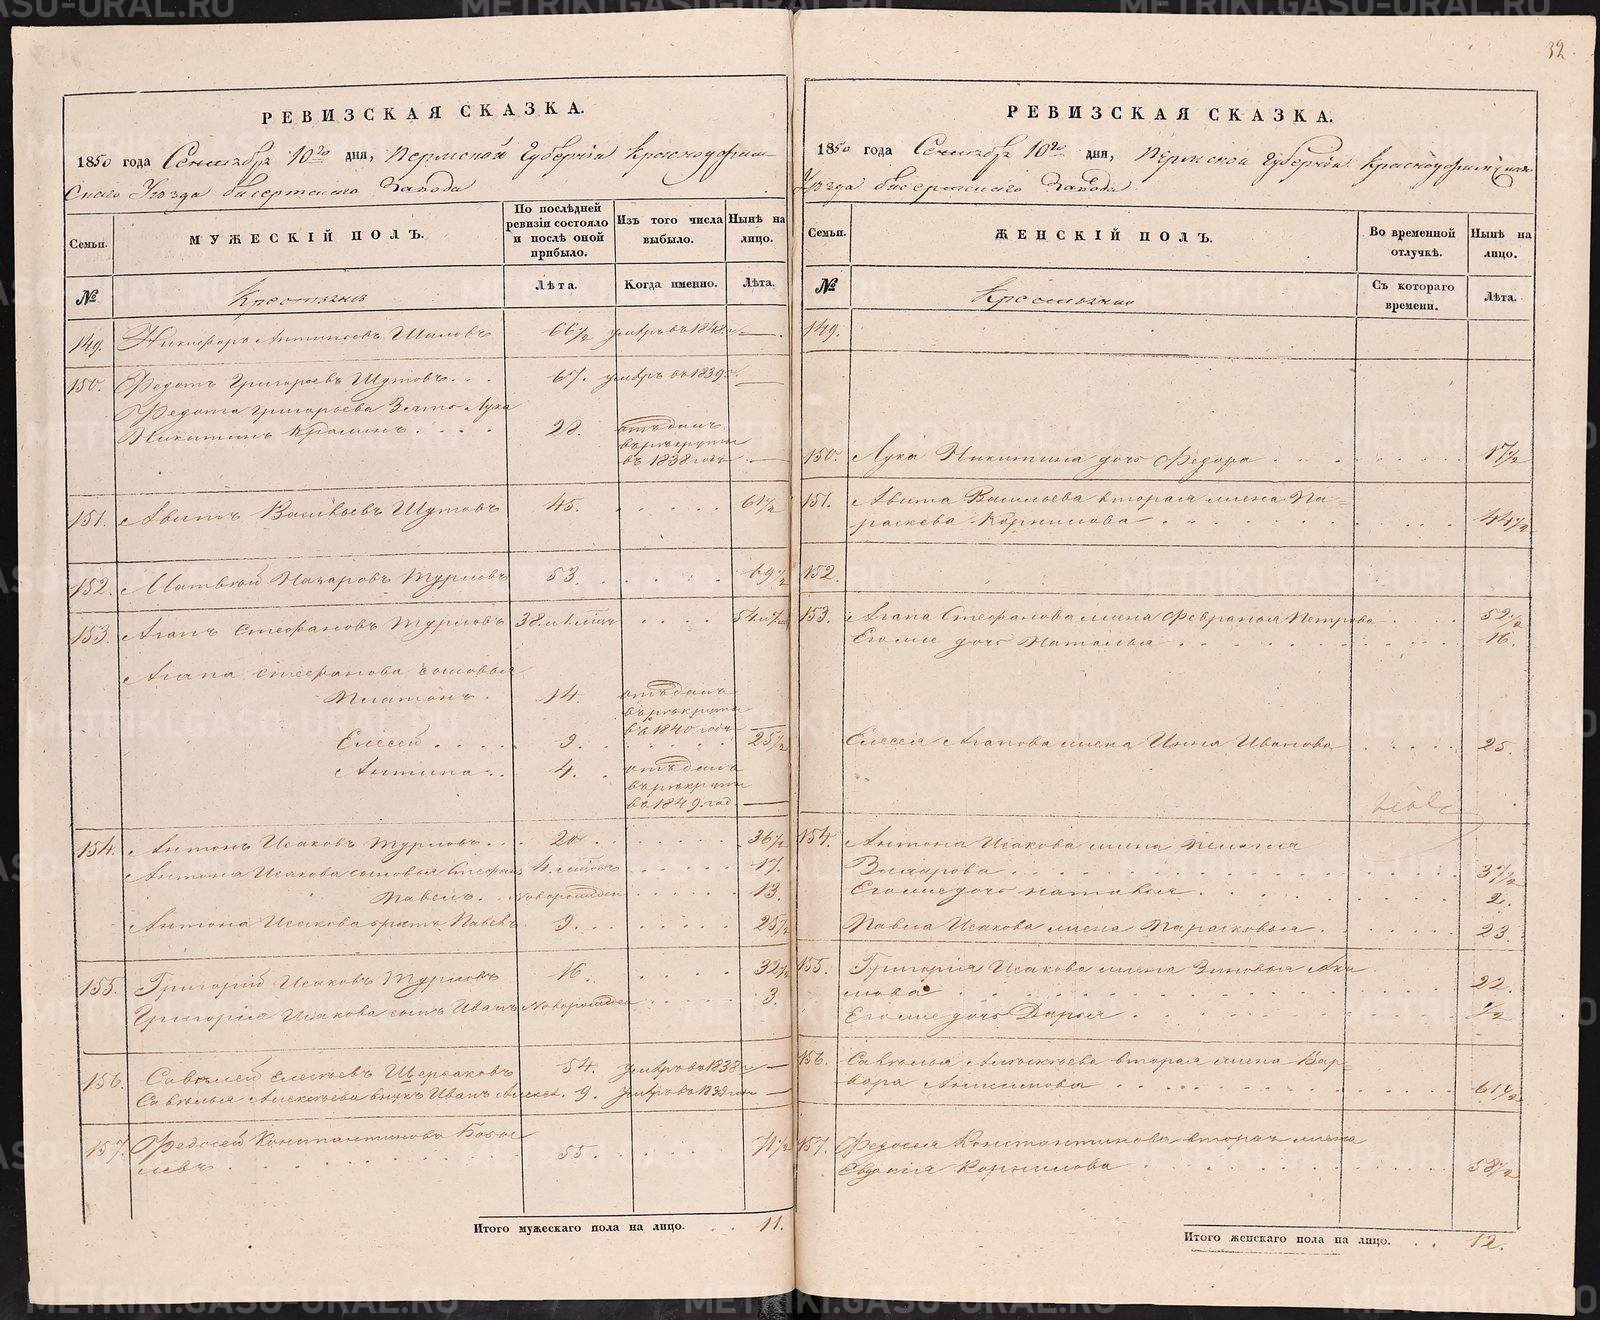 32
РЕВИЗСКАЯ СКАЗКА.
1850 года Сентября 10го дня, Пермской Губернiи Красноуфим-
скаго Уѣзда Бисертскаго Завода
Семьи.
МУЖЕСКІЙ ПОЛЪ.
По послѣдней ревизіи состояло и послѣ оной прибыло.
Изъ того числа выбыло.
Нынѣ на лицо.
№
Крестьяне
Лѣта.
Когда именно.
Лѣта.
149. Никифоръ Антиповъ Шиловъ 66 1/2 умеръ въ 1848 г. —
150. Федотъ Григорьевъ Шутовъ 67. умеръ въ 1839 г. —
Федота Григорьева Зять Лука
Никитинъ 28. отъданъ
въ рекруты
въ 1838 годъ —
151. Авитъ Васильевъ Шутовъ 45. 61 1/2
152. Матвѣй Назаровъ Турловъ 53. 69 1/2
153. Агапъ Стефановъ Турловъ 38.
Агапа Стефанова сыновья
Платонъ 14. отъданъ
въ рекруты
въ 1840 годъ —
Елесей 9. 25 1/2
Антипа 4. отъданъ
въ рекруты
въ 1849 год —
154. Антонъ Исаковъ Турловъ 20 36 1/2
Антона Исакова сыновья Стефанъ 4. 17.
Павелъ Новорожден 13.
Антона Исакова братъ Павелъ 9. 25 1/2
155. Григорій Исаковъ Турловъ 16. 32 1/2
Григорія Исакова сынъ Иванъ Новорожден 3.
156. Савѣлей 54. умеръ въ 1838 г —
Савелья Алексѣева внукъ Иванъ Алексѣ. 9. умеръ въ 1839 —
157. Федосей Константиновъ 55. 71 1/2
Итого мужескаго пола на лицо. 11.
РЕВИЗСКАЯ СКАЗКА.
1850 года Сентября 10го дня, Пермской Губернiи Красноуфимскаго
Уѣзда Бисертскаго Завода
Семьи.
ЖЕНСКІЙ ПОЛЪ.
Во временной отлучкѣ.
Нынѣ на лицо.
№
Крестьянки
Съ котораго времени.
Лѣта.
149.
150. Луки Никитина дочь Федора 17 1/2
151. Авита Васильева вторая жена Па-
раскева Корнилова 44 1/2
152.
153. Агапа Стефанова жена Февранья Петрова 52 1/2
Его же дочь Наталья 16.
Елесея Агапова жена Анна Иванова 25.
154. Антона Исакова жена Пелагея
37 1/2
Его же дочь Наталья 2.
Павла Исакова жена Парасковья 23.
155. Григорія Исакова жена Зиновья Аки
мова 22.
Его же дочь Дарья 1/2
156. Савелья Алексѣева вторая жена Вар-
вара Анисимова 61 1/2
157. Федосея Константинова вторая жена
Евдокія Корнилова 58 1/2
Итого женскаго пола на лицо. 12.
METRIKI.GASO-URAL.RU